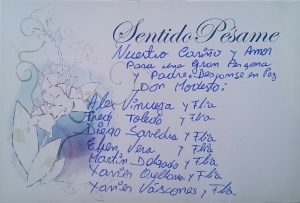 Sentido Pésame
Nuestro Cariño y Amor
Para una Gran Persona
y Padre: Descanse en Paz
Don Modesto:
Alex Vinueza y Flia
Fredi Toledo y Flia
Diego Saavedra y Flia.
Efren Vera y Flia.
Martin Delgado y Flia.
Xavier Orellana y Flia.
Xavier Váscones y Flia.